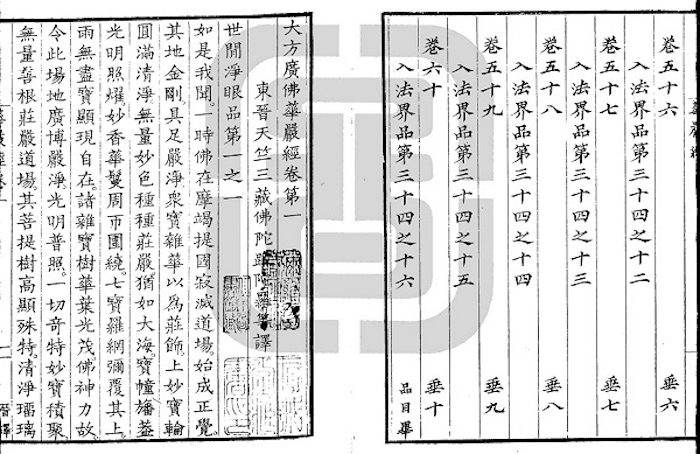 卷五十六 垂六
入法界品第三十四之十二
卷五十七 垂七
入法界品第三十四之十三
卷五十八 垂八
入法界品第三十四之十四
卷五十九 垂九
入法界品第三十四之十五
卷六十 垂十
入法界品第三十四之十六 品目畢
大方廣佛華嚴經卷第一
東晉天竺三藏佛陀跋陀羅等譯
世間淨眼品第一之一
如是我聞。一時佛在摩竭提國寂滅道場。始成正覺。
其地金剛。具足嚴淨衆寶雜華以為莊飾。上妙寶輪
圓滿清淨。無量妙色種種莊嚴。猶如大海。寶幢旛蓋
光明照耀妙香華鬘周帀圍繞。七寶羅網彌覆其上。
雨無盡寶顯現自在。諸雜寶樹華葉光茂佛神力故。
令此場地廣博嚴淨。光明普照。一切奇特妙寶積聚。
無量善根莊嚴道場。其菩提樹高顯殊特。清淨瑠璃